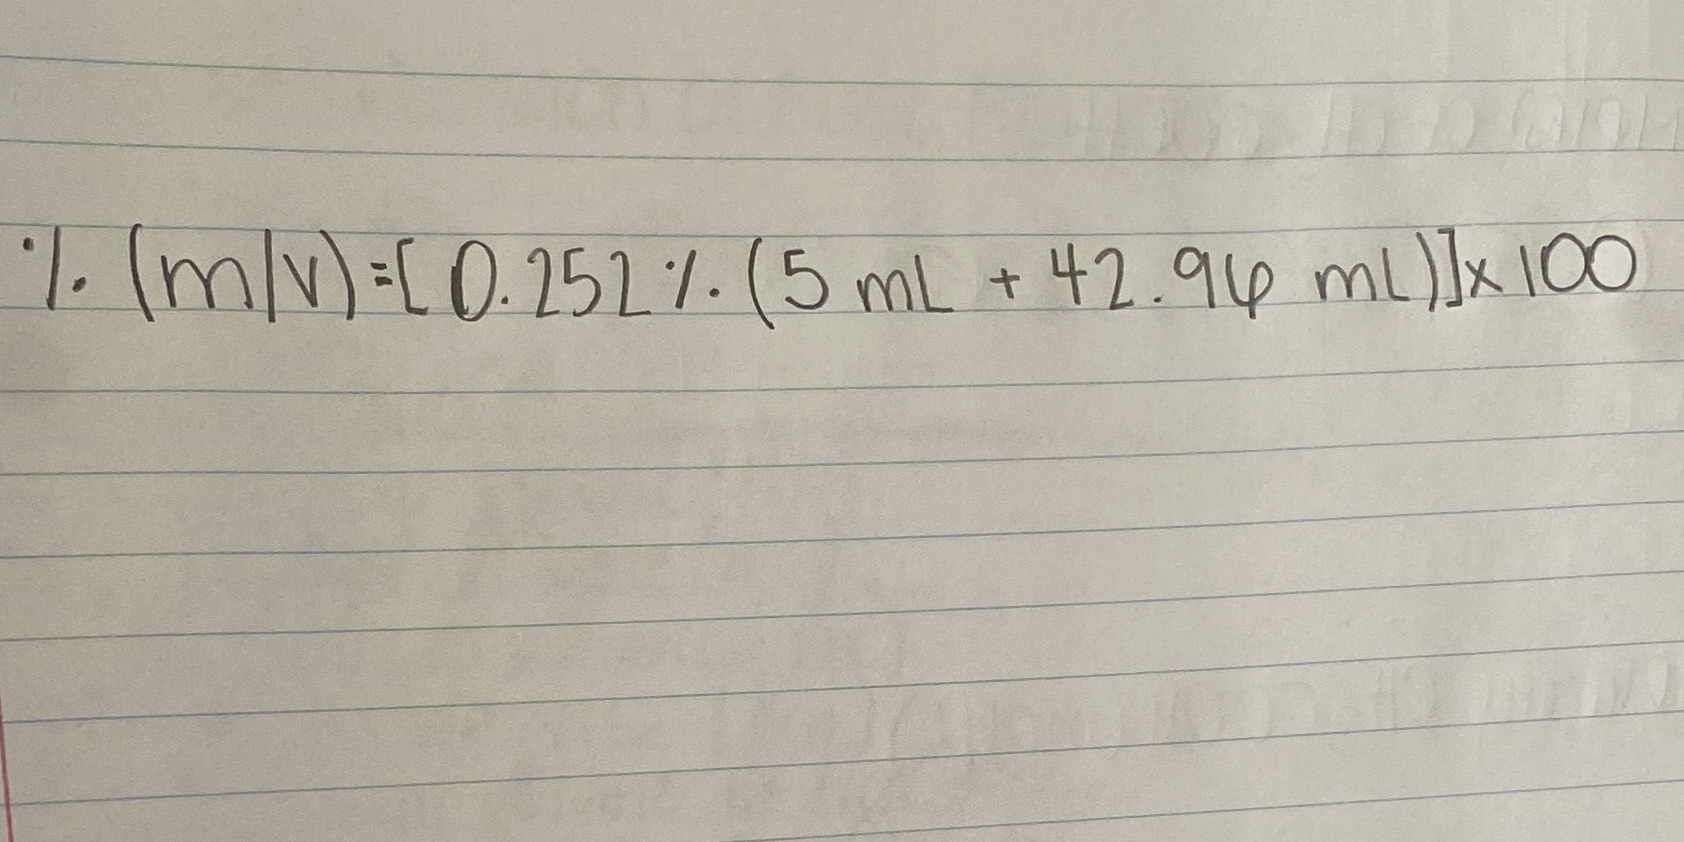 % (m/v)=[0.252 % (5 mL + 42.96 mL)]x100